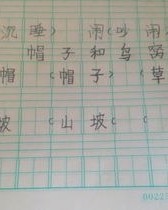 沉睡) 闹(吵闹
帽子和鸟窝
帽(帽子)(草
坡(山坡)(